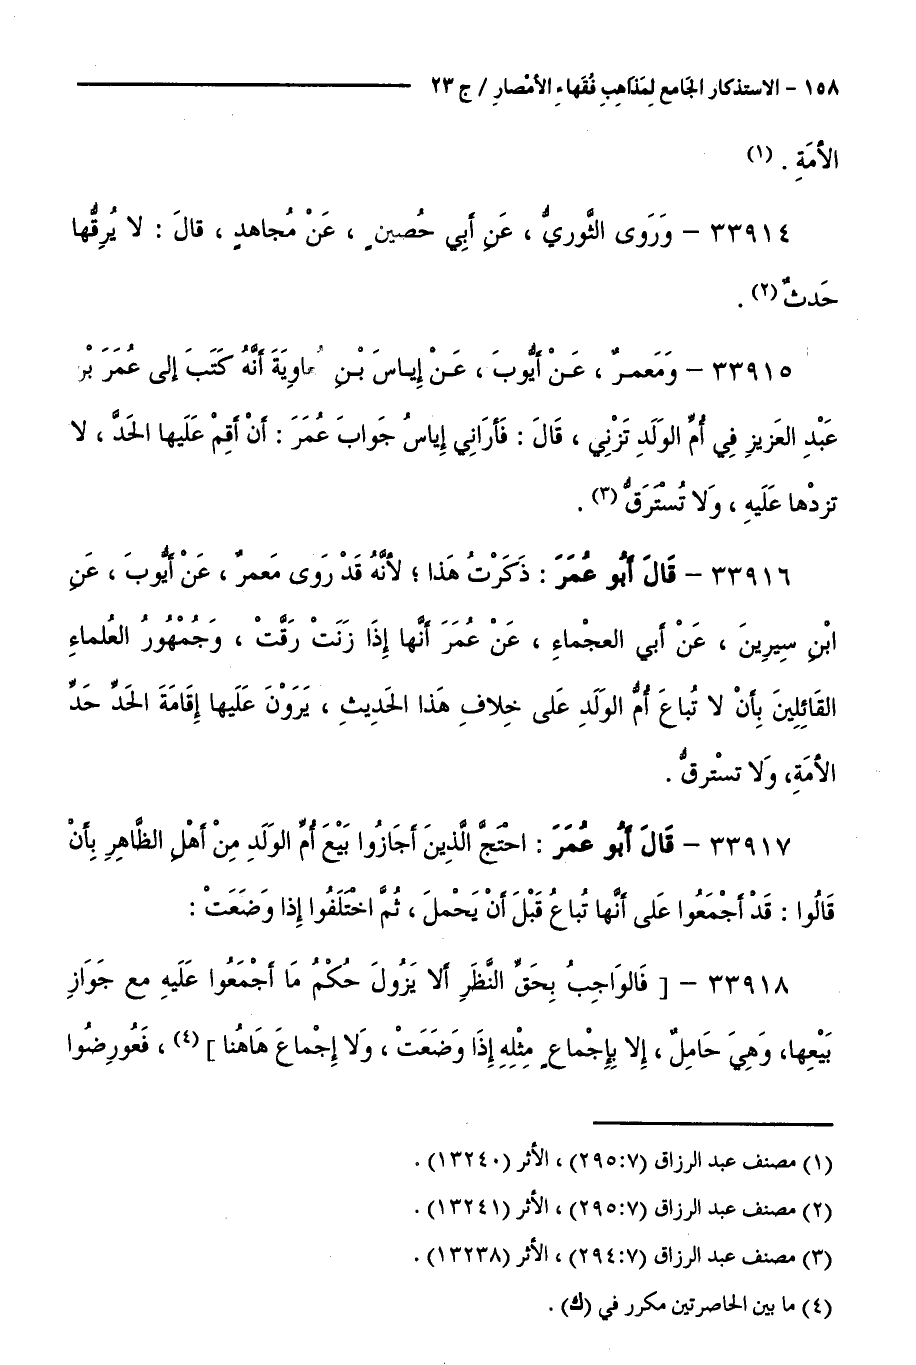 ١٥٨ - الاستذكار الجَامع لِمَذَاهِبِ فُقَهاءِ الأمْصارِ / ج ٢٣
الأَمَةِ . (١)
٣٣٩١٤ – وَرَوى الثَّوريُّ ، عَنِ أَبِي حُصينٍ ، عَنْ مُجاهدٍ ، قالَ : لا يُرِقُّها
حَدثٌ (٢) .
٣٣٩١٥ – وَمَعمرٌ ، عَنْ أَيُّوبَ ، عَنْ إِياسَ بْنِ مُعاوِيَةَ أَنَّهُ كَتَبَ إلى عُمَرَ بْنِ
عَبْدِ العَزيزِ فِي أُمِّ الوَلَدِ تَزْنِي ، قَالَ : فَأَرَانِي إِياسُ جَوابَ عُمَرَ : أَنْ أَقِمْ عَلَيها الحَدَّ ، لا
تزدْها عَلَيهِ ، وَلا تُسْتَرَقُّ (٣) .
٣٣٩١٦ – قَالَ أَبُو عُمَرَ : ذَكَرْتُ هَذا ؛ لأَنَّهُ قَدْ رَوى مَعمرٌ ، عَنْ أَيُّوبَ ، عَنِ
ابْنِ سِيرِينَ ، عَنْ أَبي العجْماءِ ، عَنْ عُمَرَ أَنَّها إِذَا زَنَتْ رَقَّتْ ، وَجُمْهُورُ العُلماءِ
القَائِلِينَ بِأَنْ لا تُباعَ أُمُّ الوَلَدِ عَلى خِلافِ هَذا الحَديثِ ، يَرَوْنَ عَلَيها إِقَامَةَ الحَدِّ حَدِّ
الأَمَةِ، وَلا تسْترقُّ .
٣٣٩١٧ – قَالَ أَبُو عُمَرَ : احْتَجَّ الَّذِينَ أَجَازُوا بَيْعَ أُمِّ الوَلَدِ مِنْ أَهْلِ الظَّاهِرِ بِأَنْ
قَالُوا : قَدْ أَجْمَعُوا عَلى أَنَّها تُباعُ قَبْلَ أَنْ يَحْملَ ، ثُمَّ اخْتَلَفُوا إِذا وَضَعَتْ :
٣٣٩١٨ – [ فَالوَاجِبُ بِحَقِّ النَّظَرِ أَلا يَزُولَ حُكْمُ مَا أَجْمَعُوا عَلَيهِ مع جَوَازِ
بَيْعِها، وَهِيَ حَامِلٌ ، إِلا بِإِجْماعٍ مِثْلِهِ إِذَا وَضَعَتْ ، وَلا إِجْماعَ هَاهُنا ] (٤) ، فَعُورِضُوا
(١) مصنف عبد الرزاق (٧:٢٩٥) ، الأثر (١٣٢٤٠) .
(٢) مصنف عبد الرزاق (٧:٢٩٥) ، الأثر (١٣٢٤١) .
(٣) مصنف عبد الرزاق (٧:٢٩٤) ، الأثر (١٣٢٣٨) .
(٤) ما بين الحاصرتين مكرر في (ك) .